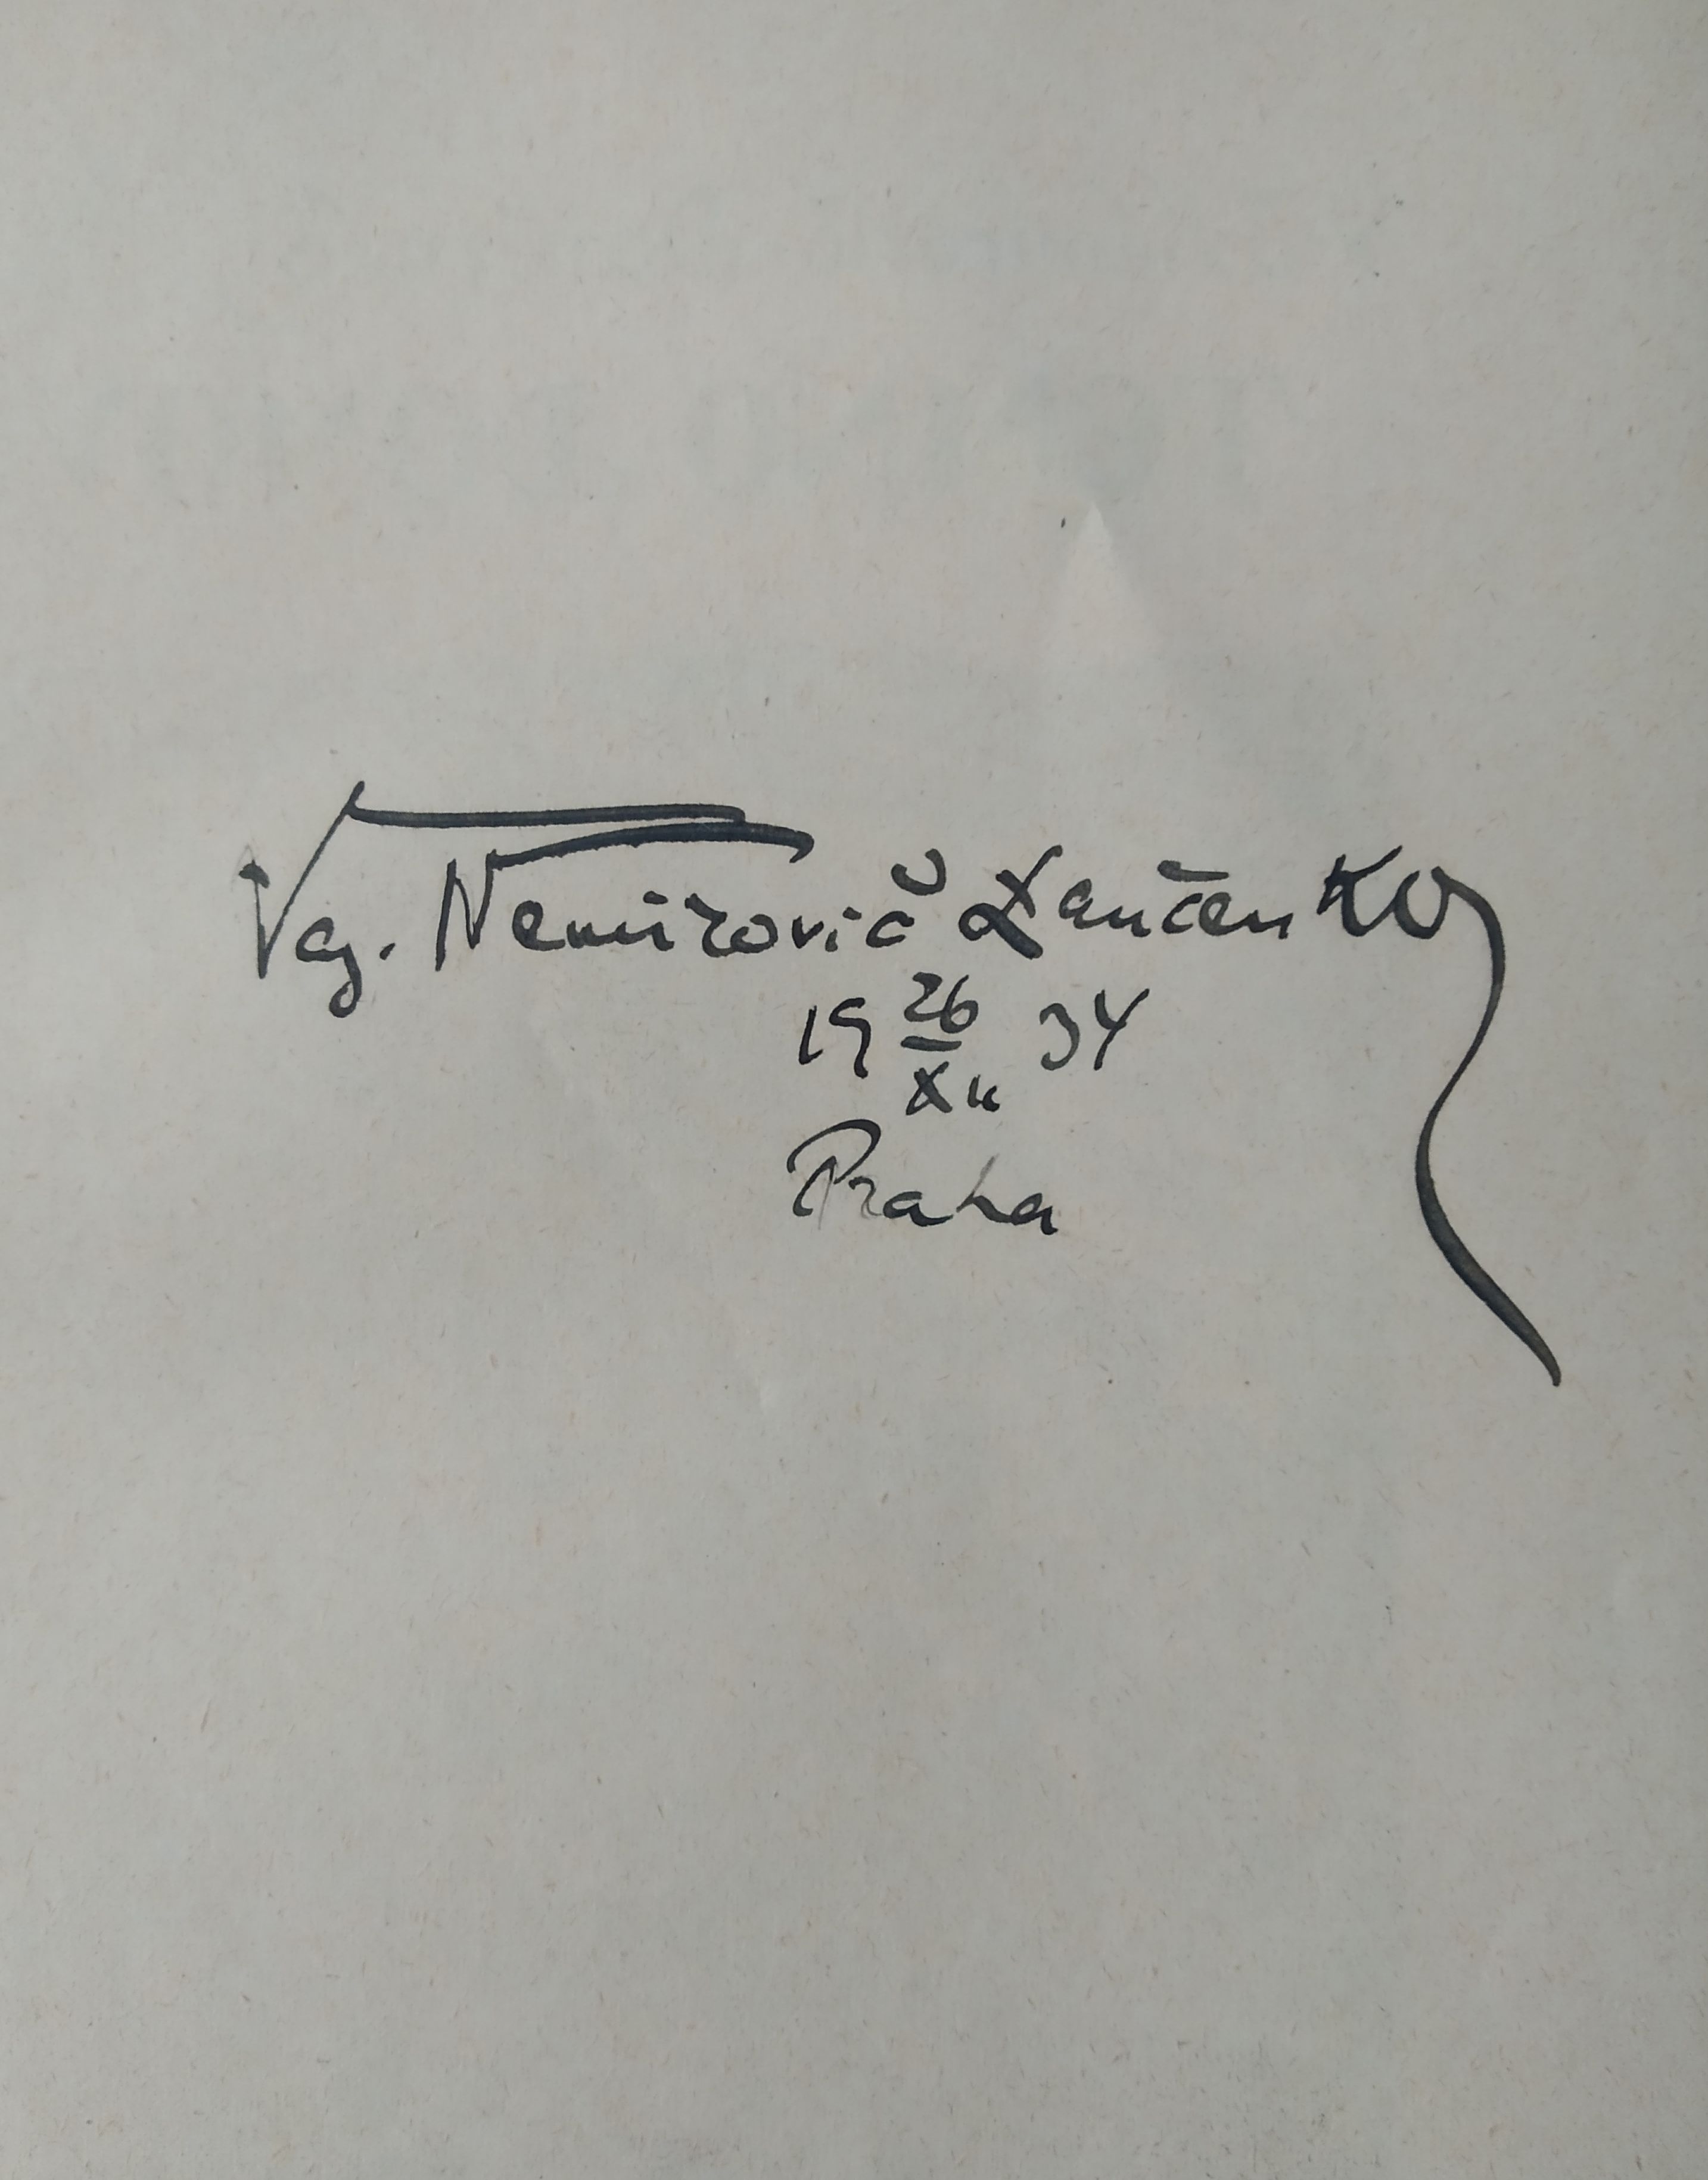 Vas. Nemirovič Dančenko
19 26/XII 34
Praha